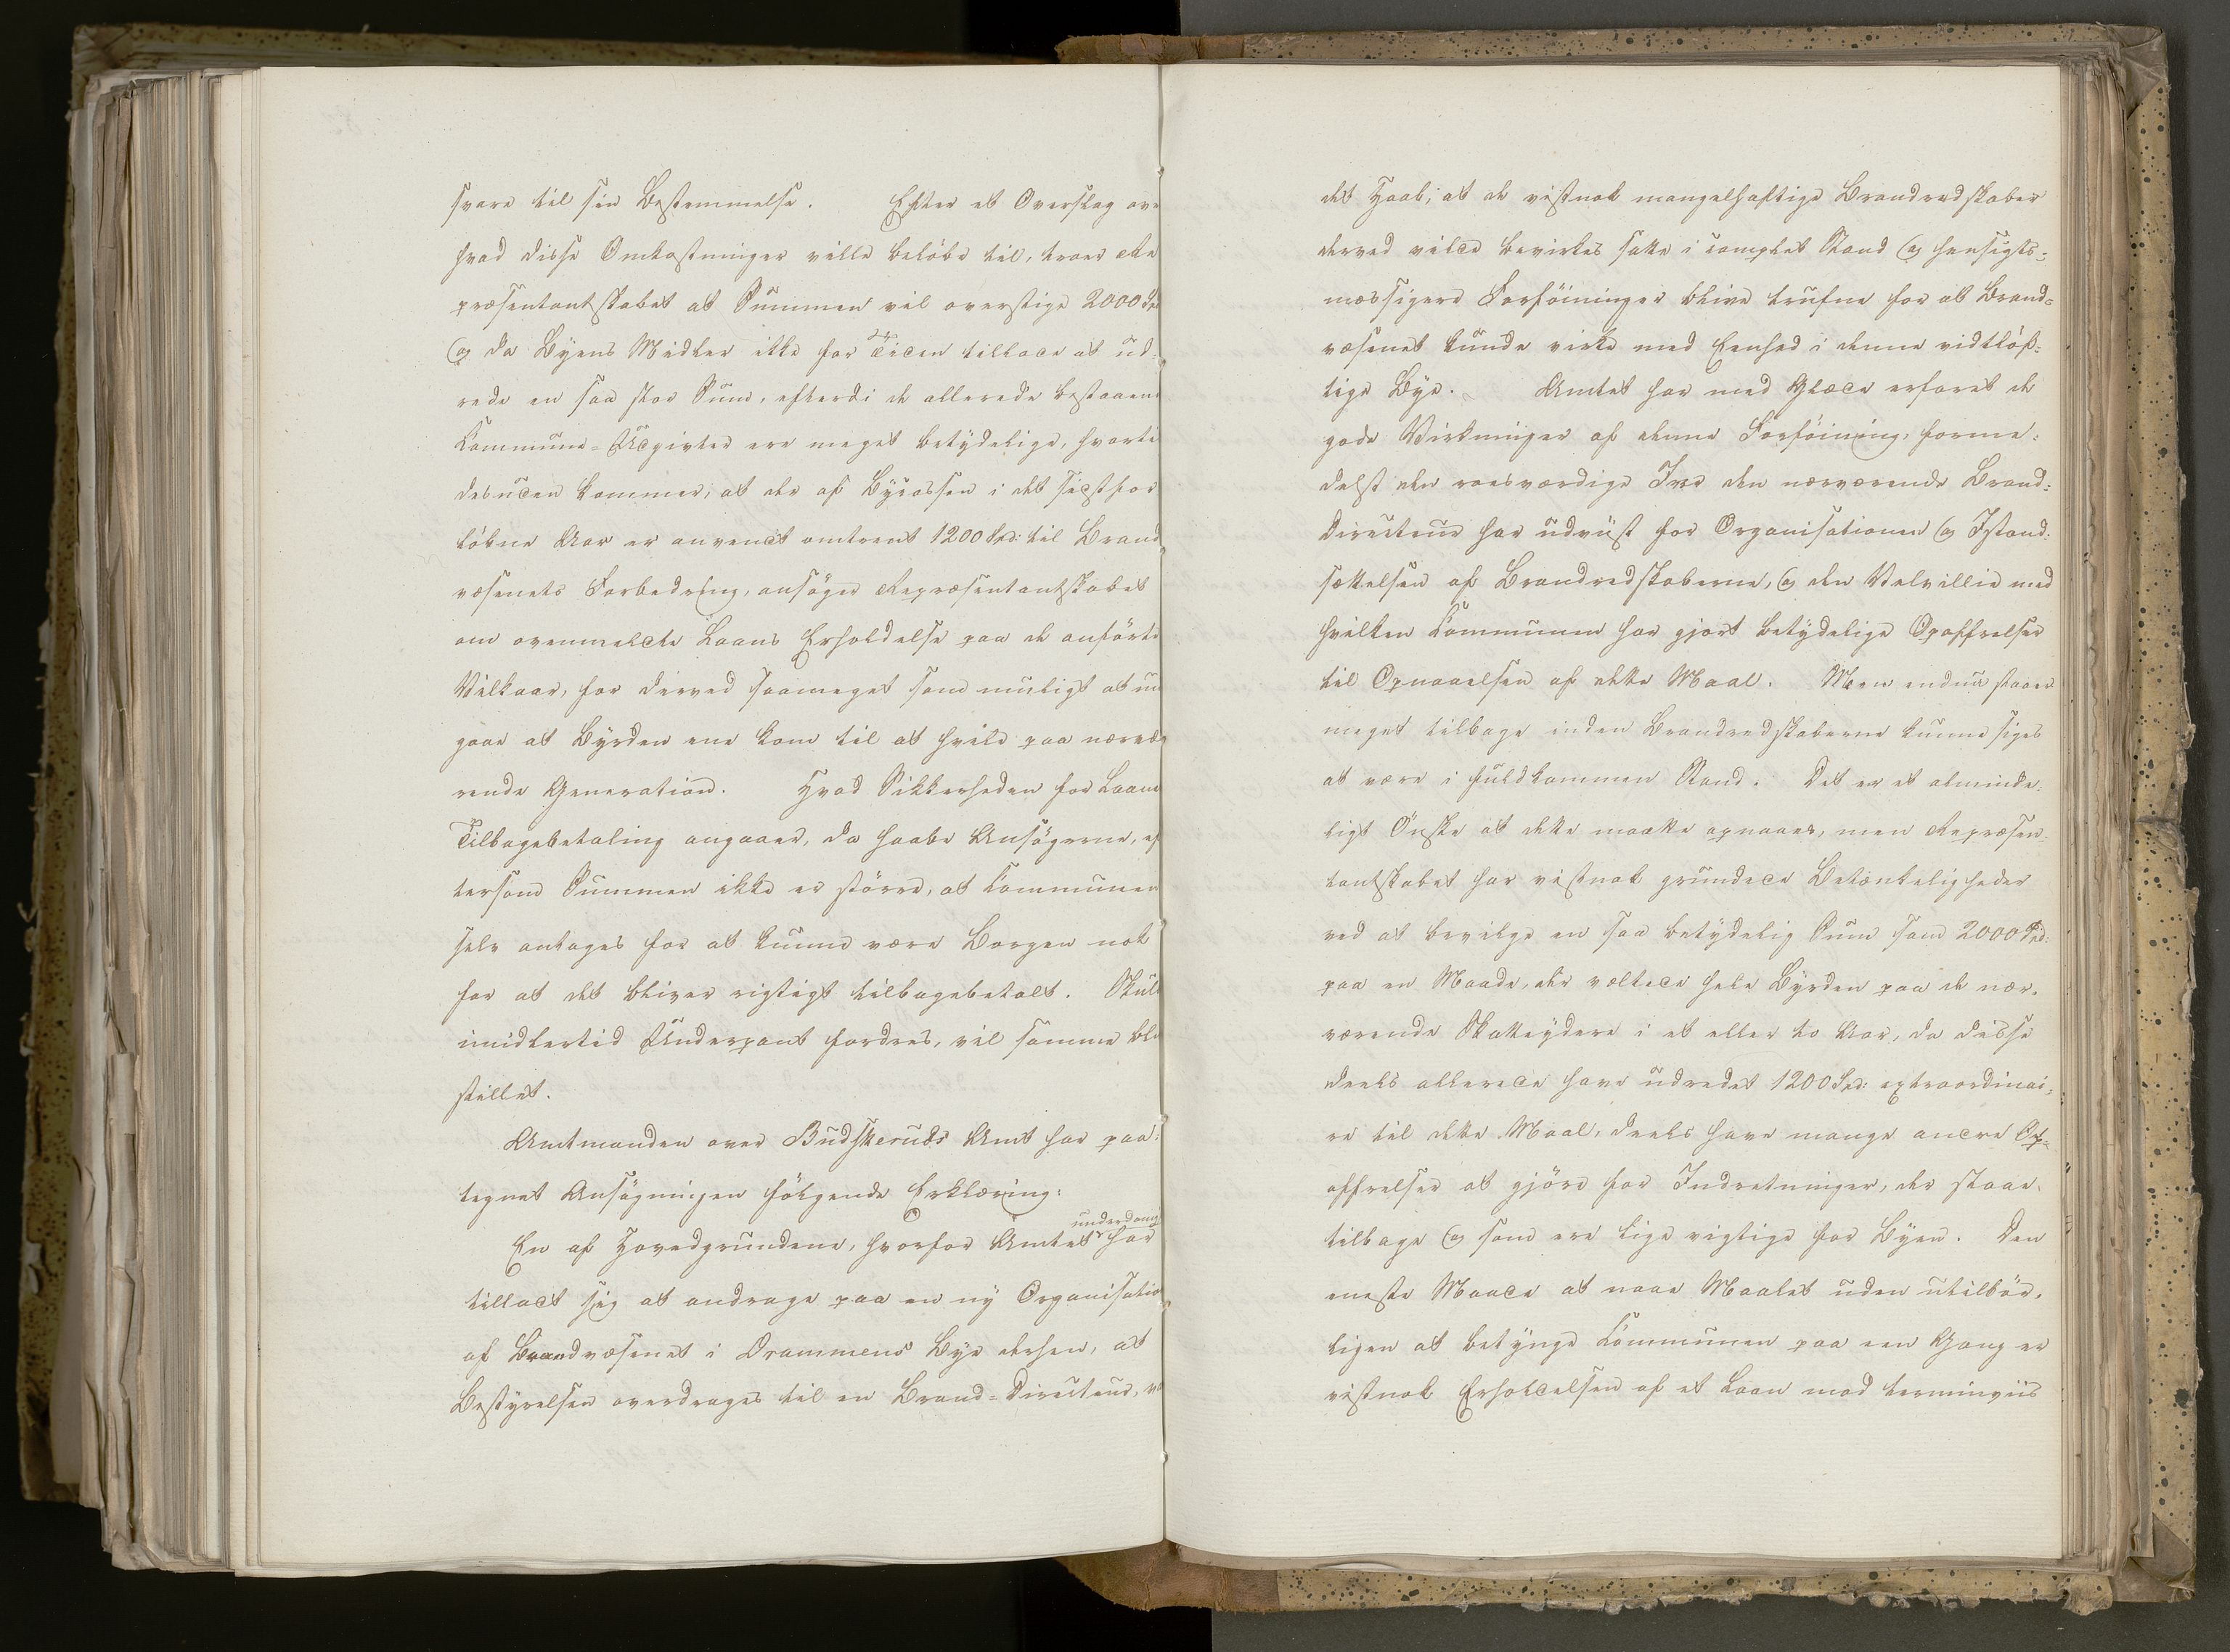 svare til sin Bestemmelse. Efter et Overslag ove
hvad disse Omkostninger ville beløbe til, troer Re
præsentantskabet at Summen vil overstige 2000 Spd
og da Byens Midler ikke for Tiden tillade at ud-
rede en saa stor Sum, efterdi de allerede bestaaend
Kommune-Udgivter ere meget betydelige, hvorti
desuden kommer, at der af Bycassen i det sidst for
løbne Aar er anvendt omtrent 1200 Spd: til Brand
væsenets Forbedring, ansøger Repræsentantskabet
om ovenmeldte Laans Erholdelse paa de anførte
Vilkaar, for derved saameget som muligt at und
gaae at Byrden ene kom til at hvile paa nærvæ
rende Generation. Hvad Sikkerheden for Laane
Tilbagebetaling angaaer, da haabe Ansøgerne, ef
tersom Summen ikke er større, at Kommunen
selv antages for at kunne være Borgen nok
for at det bliver rigtigt tilbagebetalt. Skuld
imidlertid Underpant fordres, vil samme bliv
stillet.
Amtmanden over Budskeruds Amt har paa-
tegnet Ansøgningen følgende Erklæring:
underdanig
En af Hovedgrundene, hvorfor Amtet har
tilladt sig at andrage paa en ny Organisation
af Brandvæsenet i Drammens Bye derhen, at
Bestyrelsen overdrages til en Brand-Directeur, va
det Haab, at de vistnok mangelhaftige Brandredskaber
derved vilde bevirkes satte i complet Stand og hensigts-
mæssigere Forføininger blive trufne for at Brand-
væsenet kunde virke med Eenhed i denne vidtløf-
tige Bye. Amtet har med Glæde erfaret de
gode Virkninger af denne Forføining, forme-
delst den roesværdige Iver den nærværende Brand-
Directeur har udviist for Organisationen og Istand-
sættelsen af Brandredskaberne, og den Velvillie med
hvilken Kommunen har gjort betydelige Opoffrelser
til Opnaaelsen af dette Maal. Men endnu staaer
meget tilbage inden Brandredskaberne kunne siges
at være i fuldkommen Stand. Det er et alminde-
ligt Ønske at dette maatte opnaaes, men Repræsen-
tantskabet har vistnok grundede Betænkeligheder
ved at bevilge en saa betydelig Sum som 2000 Spd:
paa en Maade, der væltede hele Byrden paa de nær-
værende Skatteydere i et eller to Aar, da disse
deels allerede have udredet 1200 Spd: extraordinai-
re til dette Maal, deels have mange andre Op-
offrelser at gjøre for Indretninger, der staae
tilbage og som ere lige vigtige for Byen. Den
eneste Maade at naae Maalet uden utilbør-
ligen at betynge Kommunen paa een Gang er
vistnok Erholdelsen af et Laan mod terminviis